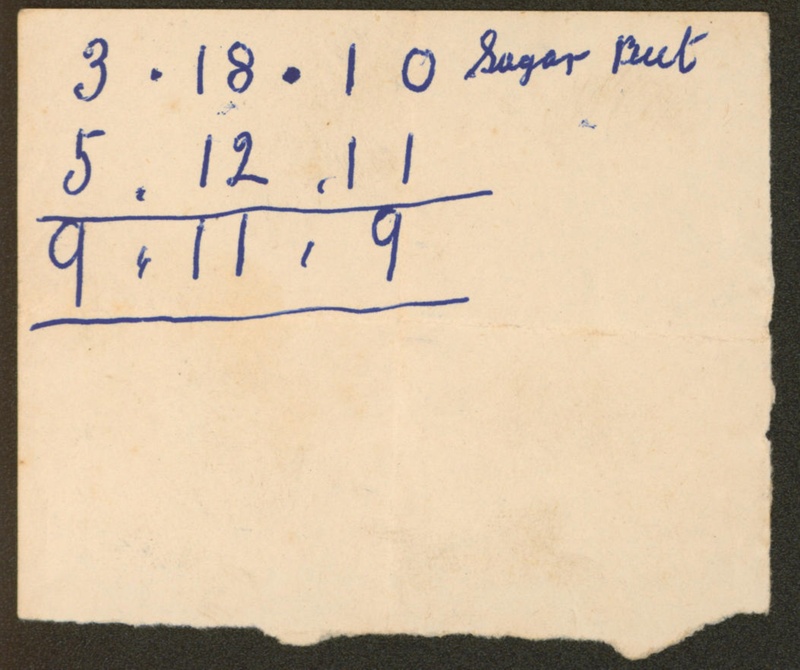 3 . 18 . 10 Sugar Beet
5 . 12 . 11
9 . 11 . 9